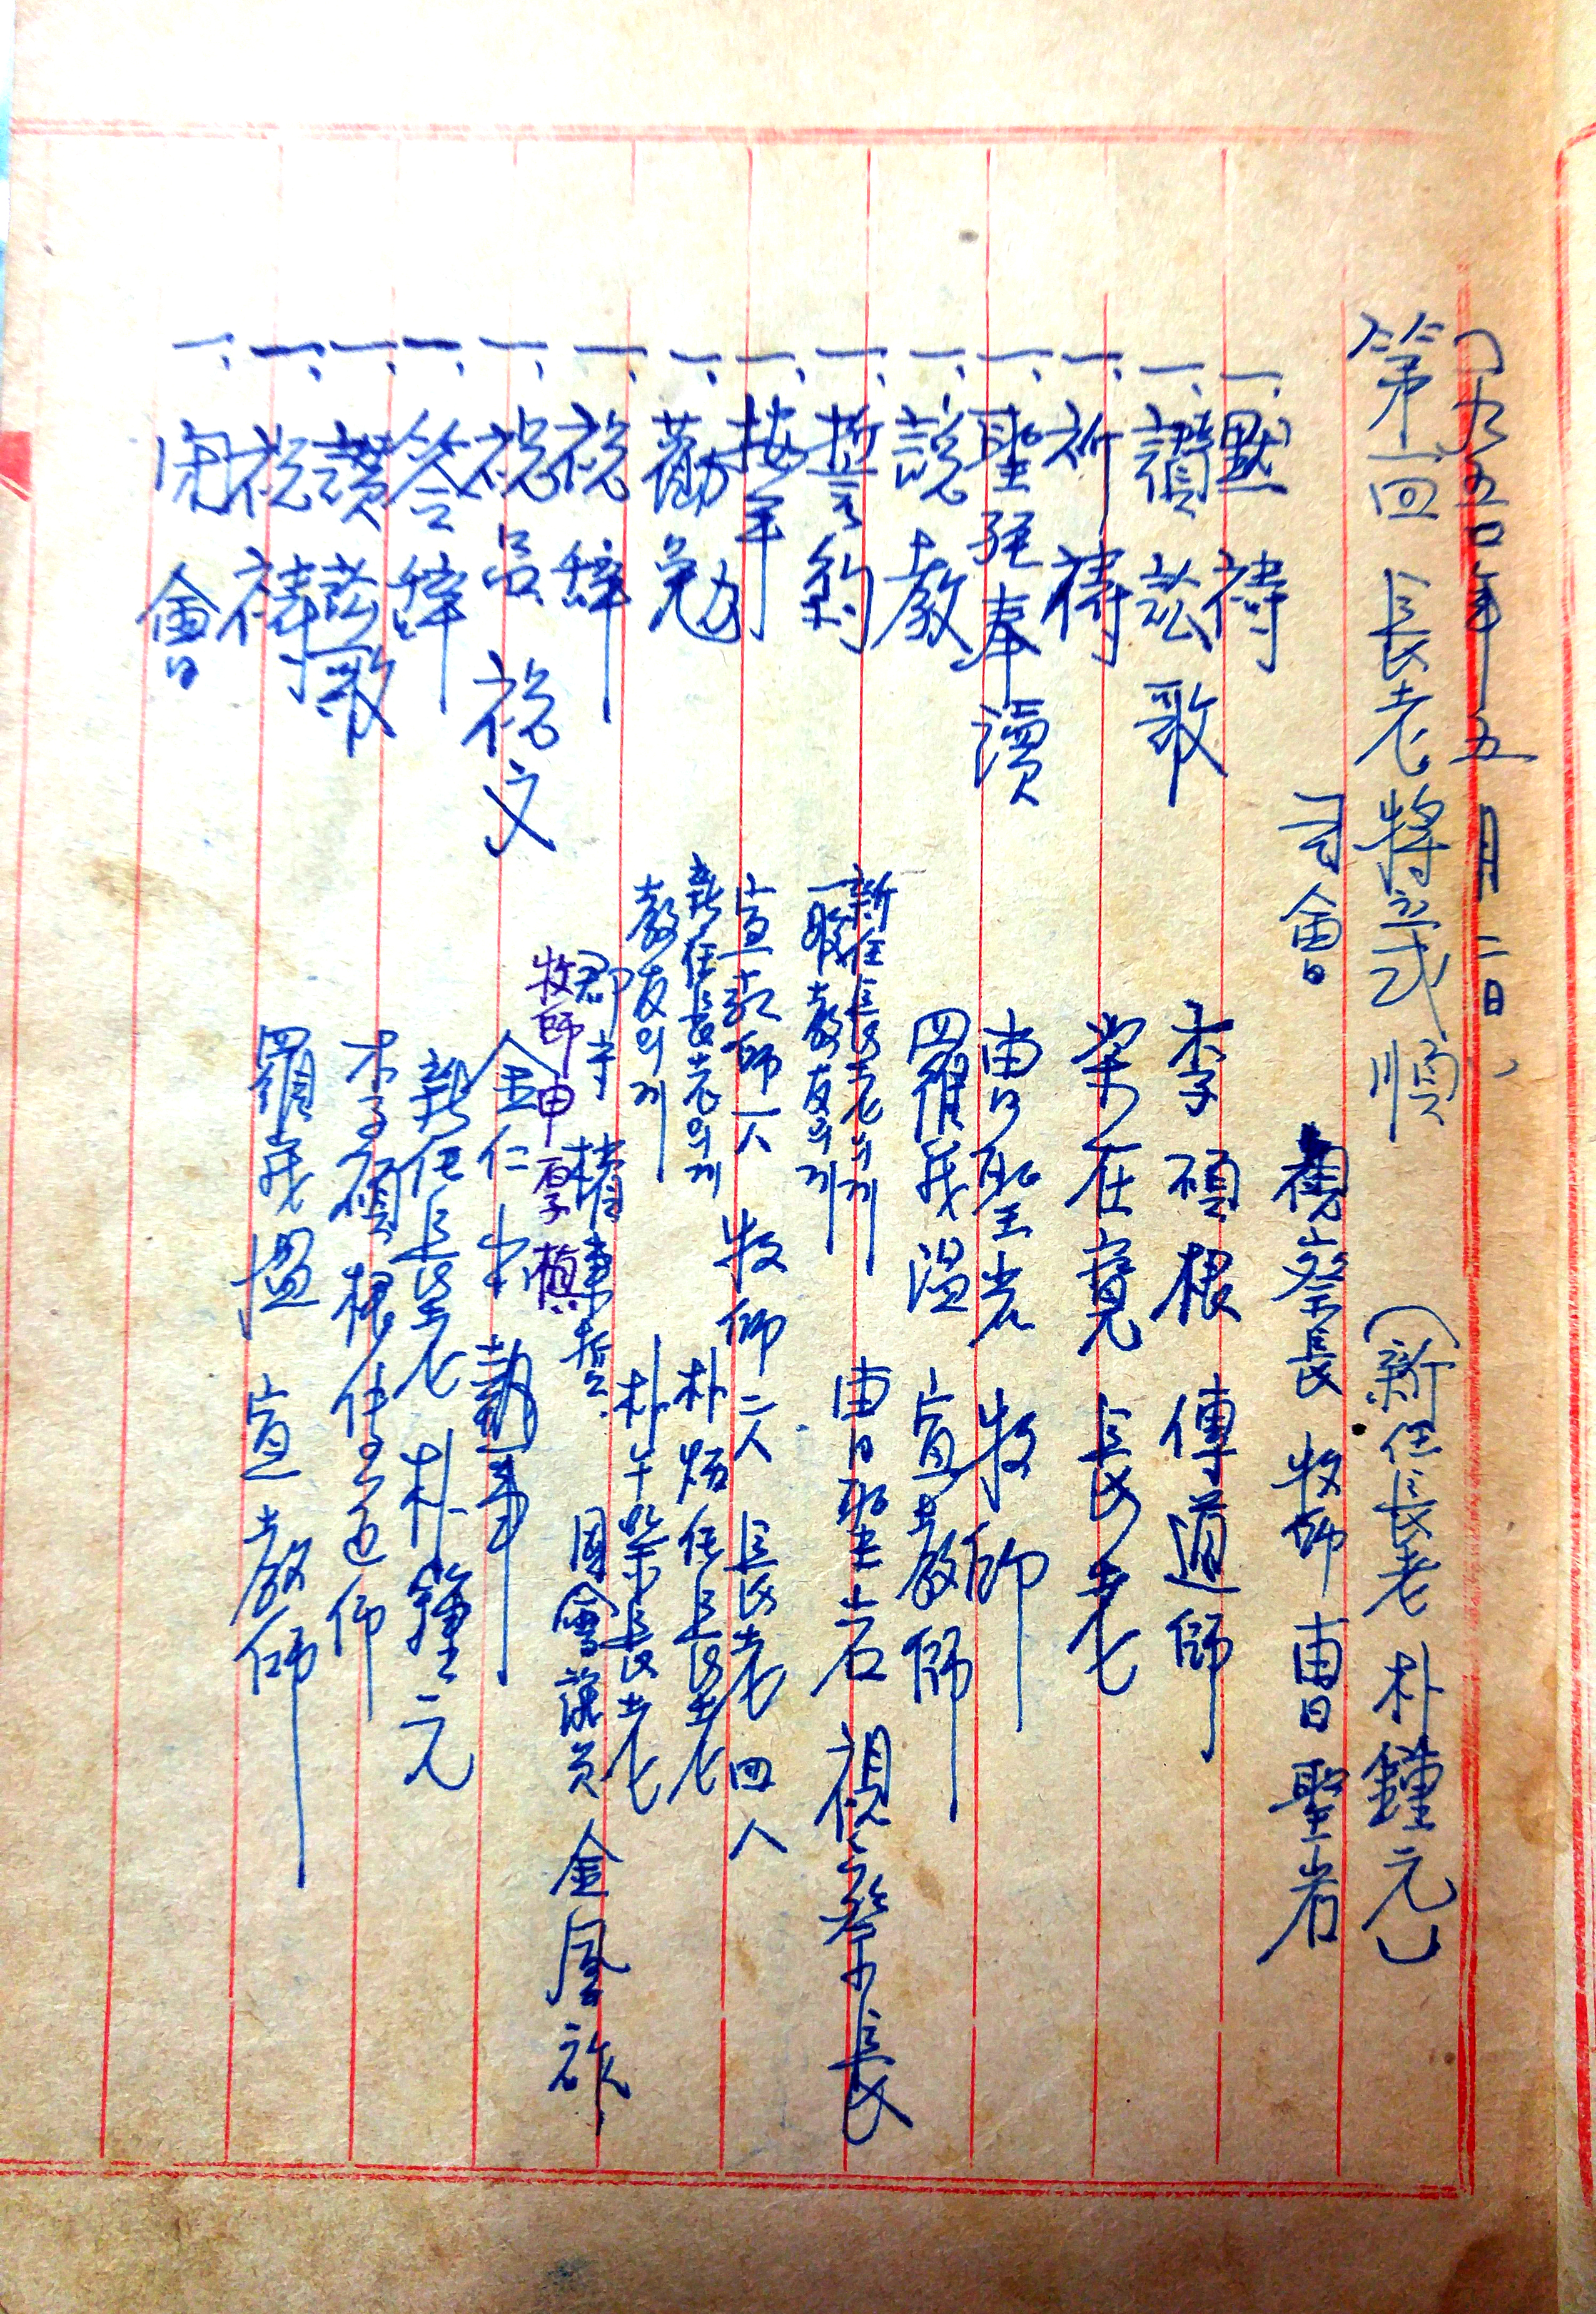 一九五〇年五月二日、
第一回長老將立式順 (新任長老 朴鍾元)
司會 視察長 牧師 曺聖岩
一、默禱
一、讚頌歌 李碩根 傳道師
一、祈禱 梁在寬 長老
一、聖經奉讀 曺聖岩 牧師
一、說教 羅義湿 宣教師
一、誓約 新任長老의게 一般教友의게 曺聖岩 視察長
一、按手 宣教師一人 牧師二人 長老四人
一、勸勉 新任長老의게 朴炳任長老
教友의게 朴午柴長老
一、祝辭 郡守 國會議員 金鳳祚
牧師申厚植
一、祝吕 祝文 金仁 執事
一、答辭 新任長老 朴鍾元
一、讚頌歌 李碩根 傳道師
一、祝禱 羅義湿 宣教師
一、閉會